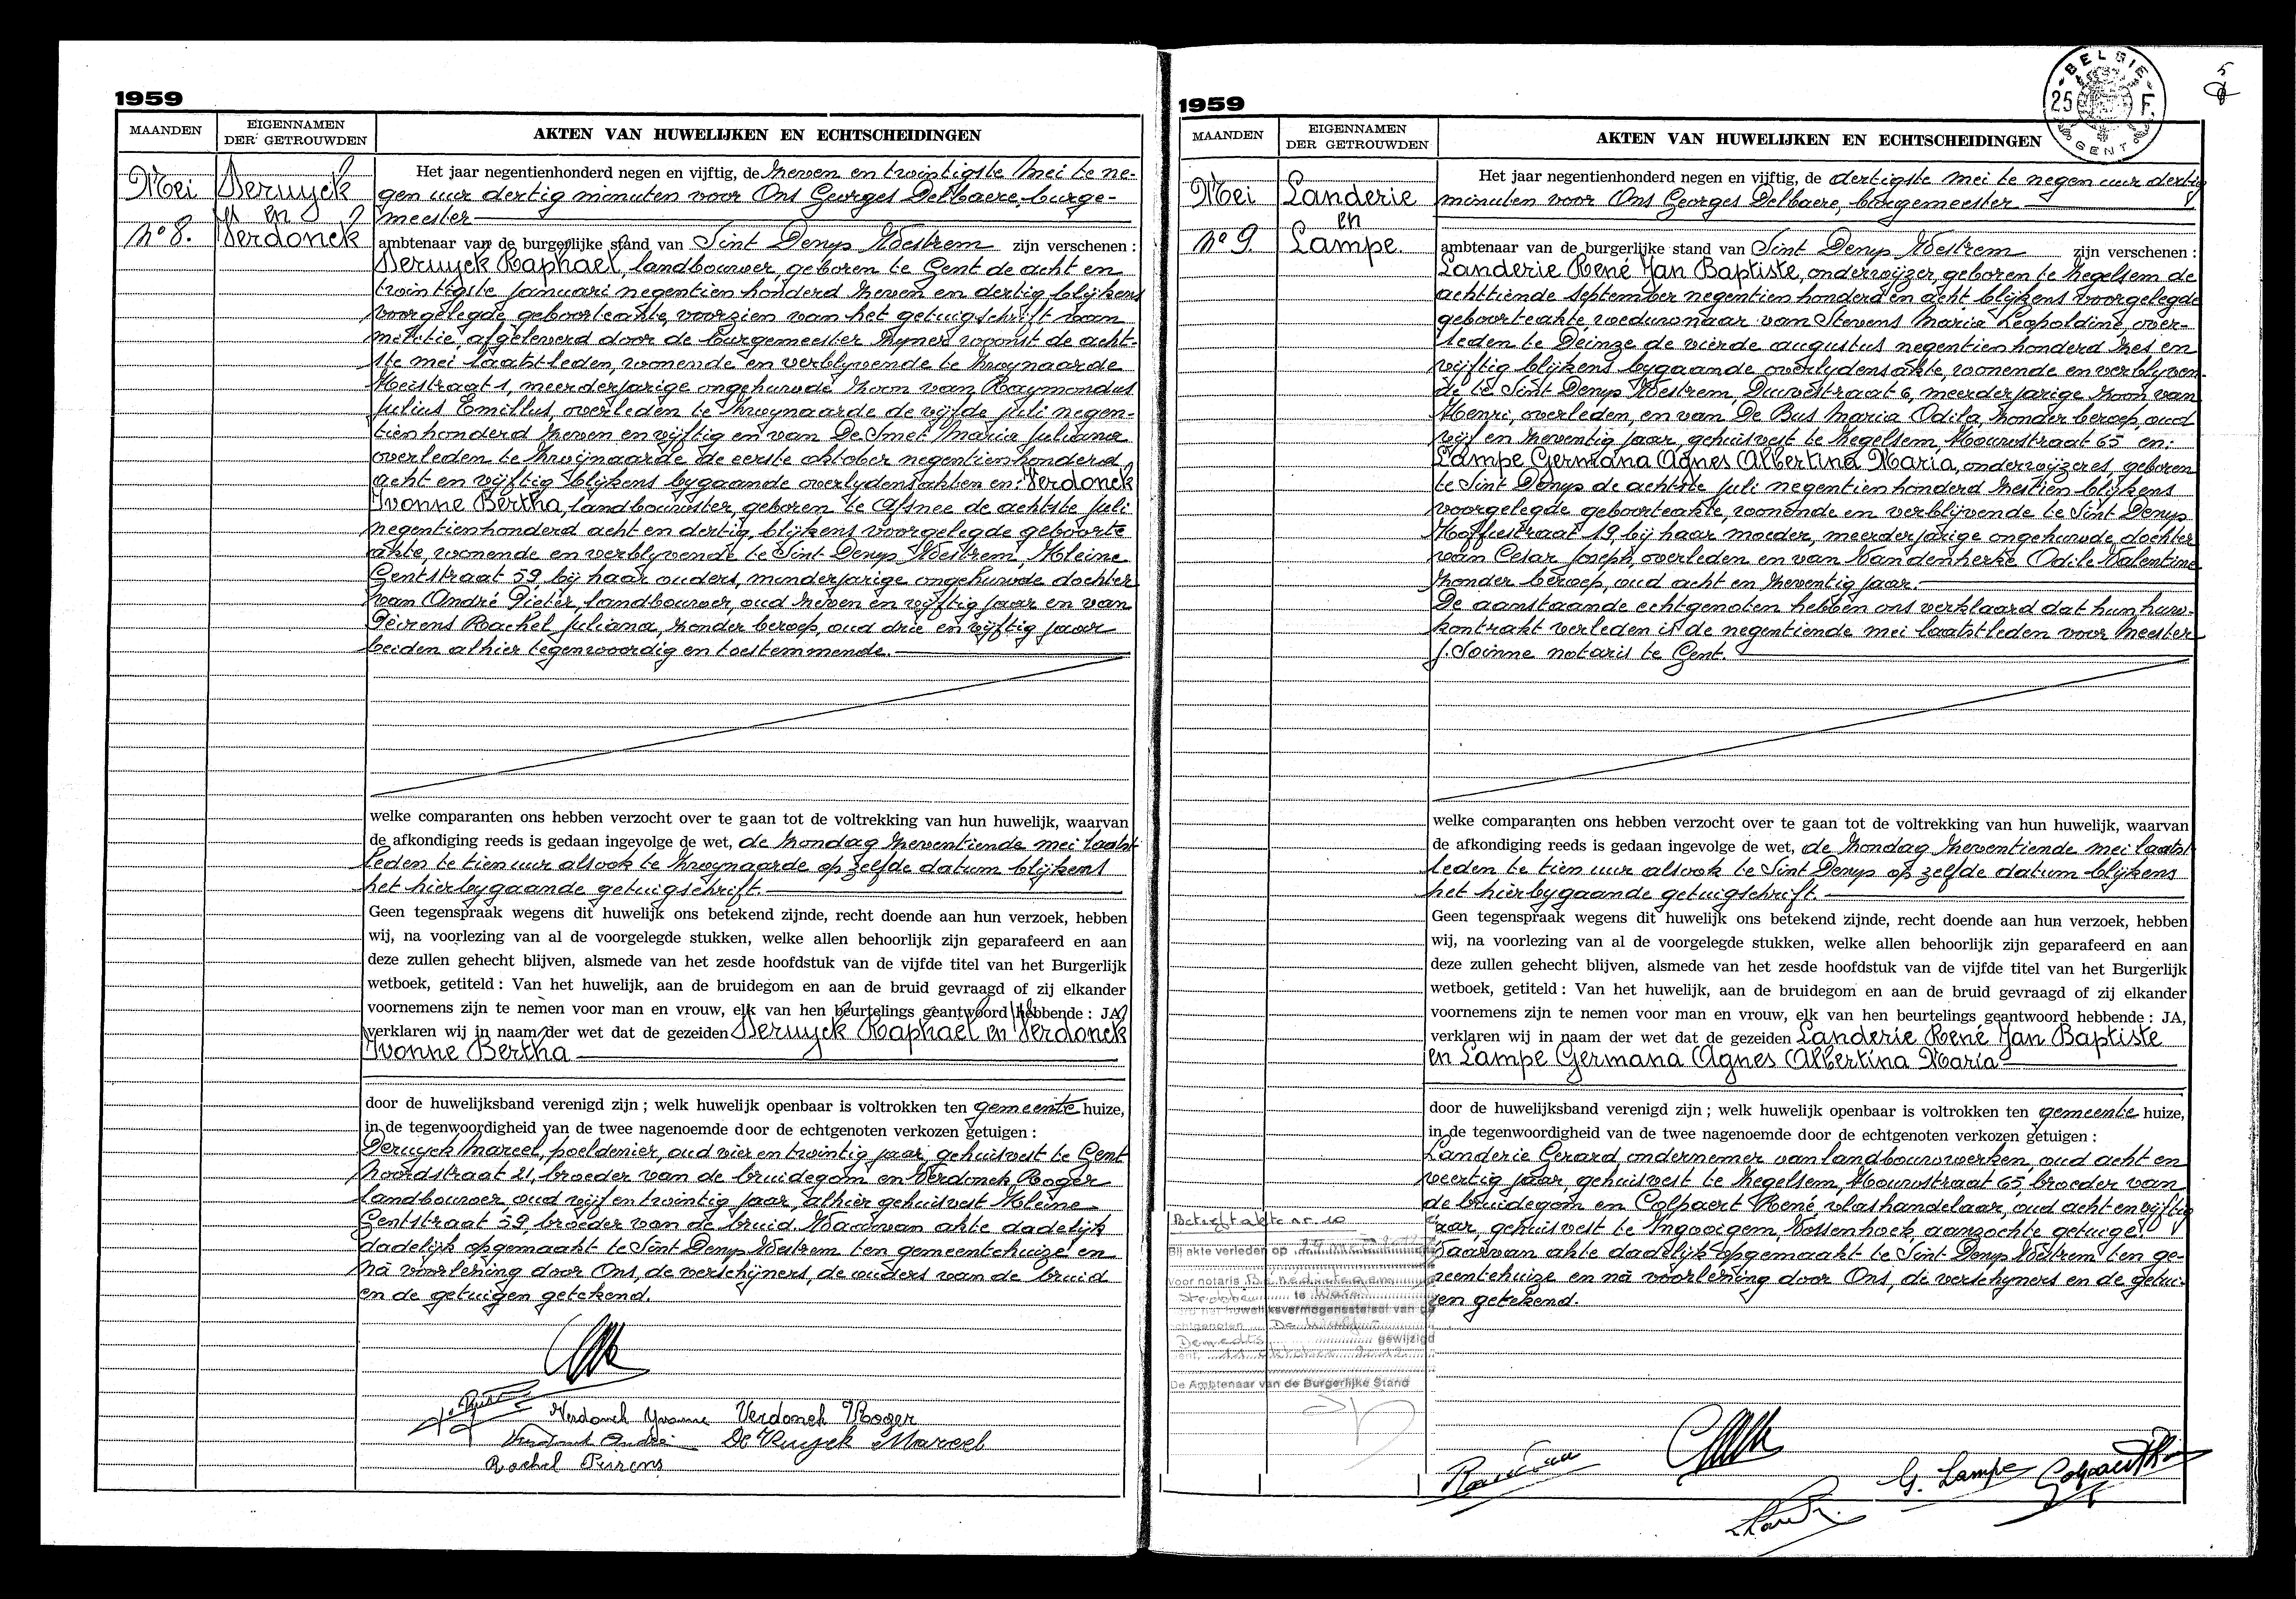 1959
MAANDEN
EIGENNAMEN
DER GETROUWDEN
AKTEN VAN HUWELIJKEN EN ECHTSCHEIDINGEN
Mei
Deruyck
en
Verdonck
No 8.
Het jaar negentienhonderd negen en vijftig, de zeven en twintigste mei te ne-
gen uur dertig minuten voor Ons Georges Delbaere, burge-
meester
ambtenaar van de burgerlijke stand van Sint Denys Westrem zijn verschenen :
Deruyck Raphael, landbouwer, geboren te Gent de acht en
twintigste januari negentienhonderd zeven en dertig blijkens
voorgelegde geboorteakte, voorzien van het getuigschrift van
militie, afgeleverd door de burgemeester zijner woonst de acht-
ste mei laatstleden, wonende en verblyvende te Zwynaarde
Heistraat 1, meerderjarige ongehuwde zoon van Raymondus
Julius Emillus, overleden te Zwynaarde de vijfde juli negen-
tienhonderd zeven en vijftig en van De Smet Maria Juliana
overleden te Zwijnaarde de eerste oktober negentienhonderd
acht en vijftig blijkens bygaande overlydensakten en: Verdonck
Yvonne Bertha, landbouwster, geboren te Afsnee de achtste juli
negentienhonderd acht en dertig, blijkens voorgelegde geboorte
akte, wonende en verblyvende te Sint Denys Westrem, Kleine
Gentstraat 59, bij haar ouders, minderjarige ongehuwde dochter
van André Pieter, landbouwer, oud zeven en vijftig jaar en van
Peirens Rachel Juliana, zonder beroep, oud drie en vijftig jaar
beiden alhier tegenwoordig en toestemmende.
welke comparanten ons hebben verzocht over te gaan tot de voltrekking van hun huwelijk, waarvan
de afkondiging reeds is gedaan ingevolge de wet, de zondag zeventiende mei laatst
leden te tien uur alsook te Zwynaarde op zelfde datum blijkens
het hierbygaande getuigschrift.
Geen tegenspraak wegens dit huwelijk ons betekend zijnde, recht doende aan hun verzoek, hebben
wij, na voorlezing van al de voorgelegde stukken, welke allen behoorlijk zijn geparafeerd en aan
deze zullen gehecht blijven, alsmede van het zesde hoofdstuk van de vijfde titel van het Burgerlijk
wetboek, getiteld : Van het huwelijk, aan de bruidegom en aan de bruid gevraagd of zij elkander
voornemens zijn te nemen voor man en vrouw, elk van hen beurtelings geantwoord hebbende : JA,
verklaren wij in naam der wet dat de gezeiden Deruyck Raphael en Verdonck
Yvonne Bertha
door de huwelijksband verenigd zijn ; welk huwelijk openbaar is voltrokken ten gemeente huize,
in de tegenwoordigheid van de twee nagenoemde door de echtgenoten verkozen getuigen :
Deruyck Marcel, poeldenier, oud vier en twintig jaar, gehuisvest te Gent
Noordstraat 21, broeder van de bruidegom en Verdonck Roger
landbouwer, oud vijf en twintig jaar, alhier gehuisvest Kleine
Gentstraat 59, broeder van de bruid. Waarvan akte dadelijk
dadelijk opgemaakt te Sint Denys Westrem ten gemeentehuize en
nà voorlezing door Ons, de verschijners, de ouders van de bruid
en de getuigen getekend.
Verdonck Yvonne Verdonck Roger
Verdonck André De Ruyck Marcel
Rachel Peirens
1959
BELGIE
25 F.
GENT
5
MAANDEN
EIGENNAMEN
DER GETROUWDEN
AKTEN VAN HUWELIJKEN EN ECHTSCHEIDINGEN
Mei
Landerie
en
Lampe.
No 9.
Het jaar negentienhonderd negen en vijftig, de dertigste mei te negen uur dertig
minuten voor Ons Georges Delbaere, burgemeester
ambtenaar van de burgerlijke stand van Sint Denys Westrem zijn verschenen :
Landerie René Jan Baptiste, onderwijzer, geboren te Zegelsem de
achttiende september negentienhonderd en acht blijkens voorgelegde
geboorteakte, weduwnaar van Stevens Maria Leopoldine, over-
leden te Deinze de vierde augustus negentienhonderd zes en
vijftig blijkens bygaande overlydensakte, wonende en verblyven-
de te Sint Denys Westrem, Duivestraat 6, meerderjarige zoon van
Henri, overleden, en van De Bus Maria Odila, zonder beroep, oud
vijf en zeventig jaar, gehuisvest te Zegelsem, Kouwstraat 65 en:
Lampe Germana Agnes Albertina Maria, onderwijzeres, geboren
te Sint Denys de achtste juli negentienhonderd zestien blijkens
voorgelegde geboorteakte, wonende en verblijvende te Sint Denys
Hoffiestraat 19, bij haar moeder, meerderjarige ongehuwde dochter
van Cesar Joseph, overleden en van Vandenherke Odile Valentine
zonder beroep, oud acht en zeventig jaar.
De aanstaande echtgenoten hebben ons verklaard dat hun huw-
kontrakt verleden is de negentiende mei laatstleden voor Meester
J. Soinne notaris te Gent.
welke comparanten ons hebben verzocht over te gaan tot de voltrekking van hun huwelijk, waarvan
de afkondiging reeds is gedaan ingevolge de wet, de zondag zeventiende mei laatst
leden te tien uur alsook te Sint Denys op zelfde datum blijkens
het hierbygaande getuigschrift.
Geen tegenspraak wegens dit huwelijk ons betekend zijnde, recht doende aan hun verzoek, hebben
wij, na voorlezing van al de voorgelegde stukken, welke allen behoorlijk zijn geparafeerd en aan
deze zullen gehecht blijven, alsmede van het zesde hoofdstuk van de vijfde titel van het Burgerlijk
wetboek, getiteld : Van het huwelijk, aan de bruidegom en aan de bruid gevraagd of zij elkander
voornemens zijn te nemen voor man en vrouw, elk van hen beurtelings geantwoord hebbende : JA,
verklaren wij in naam der wet dat de gezeiden Landerie René Jan Baptiste
en Lampe Germana Agnes Albertina Maria
door de huwelijksband verenigd zijn ; welk huwelijk openbaar is voltrokken ten gemeente huize,
in de tegenwoordigheid van de twee nagenoemde door de echtgenoten verkozen getuigen :
Landerie Gerard ondernemer van landbouwwerken, oud acht en
veertig jaar, gehuisvest te Zegelsem, Kouwstraat 65, broeder van
de bruidegom en Colpaert René, vlashandelaar, oud acht en vijftig
jaar, gehuisvest te Ingooigem, Vossenhoek, aanzochte getuige.
Waarvan akte dadelijk opgemaakt te Sint Denys Westrem ten ge-
meentehuize en nà voorlezing door Ons, de verschyners en de getui-
gen getekend.
Betreft akte nr. 10
Bij akte verleden op
Voor notaris
te
huwelijksvermogensstelsel van de
echtgenoten De
Demedts gewijzigd
oktober
De Ambtenaar van de Burgerlijke Stand
G. Lampe